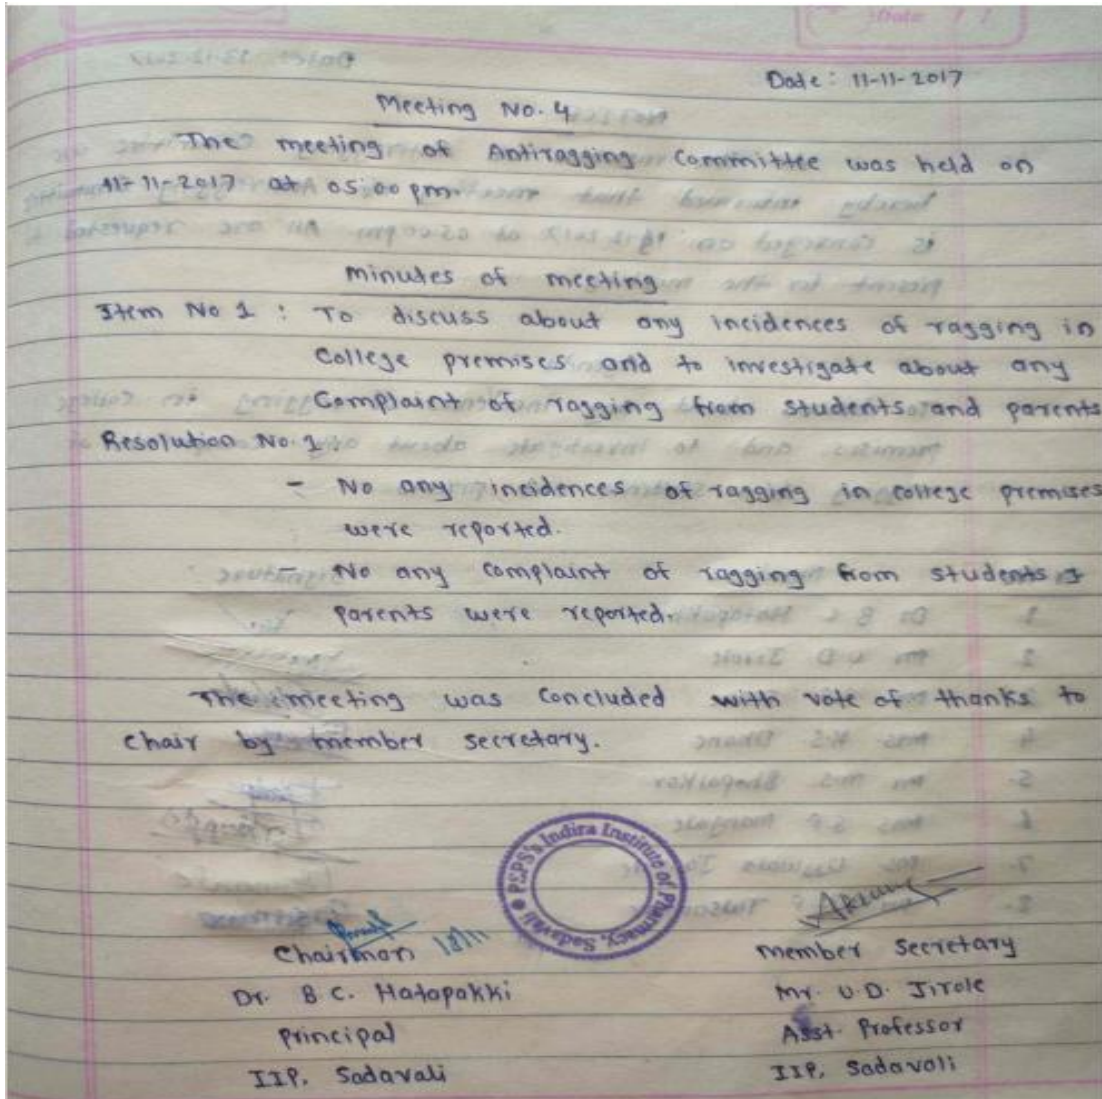 Date / /
Date: 11-11-2017
Meeting No. 4
The meeting of Antiragging Committee was held on
11-11-2017 at 05:00 pm.
Minutes of meeting
Item No 1 : To discuss about any incidences of ragging in
College premises and to investigate about any
Complaint of ragging from students and parents
Resolution No. 1.
- No any incidences of ragging in college premises
were reported.
- No any complaint of ragging from students &
parents were reported.
The meeting was concluded with vote of thanks to
chair by member secretary.
PSPS's Indira Institute of Pharmacy, Sadavali
Chairman 18/11
Member Secretary
Dr. B.C. Hatapakki
Mr. U.D. Jirole
Principal
Asst. Professor
IIP, Sadavali
IIP, Sadavali